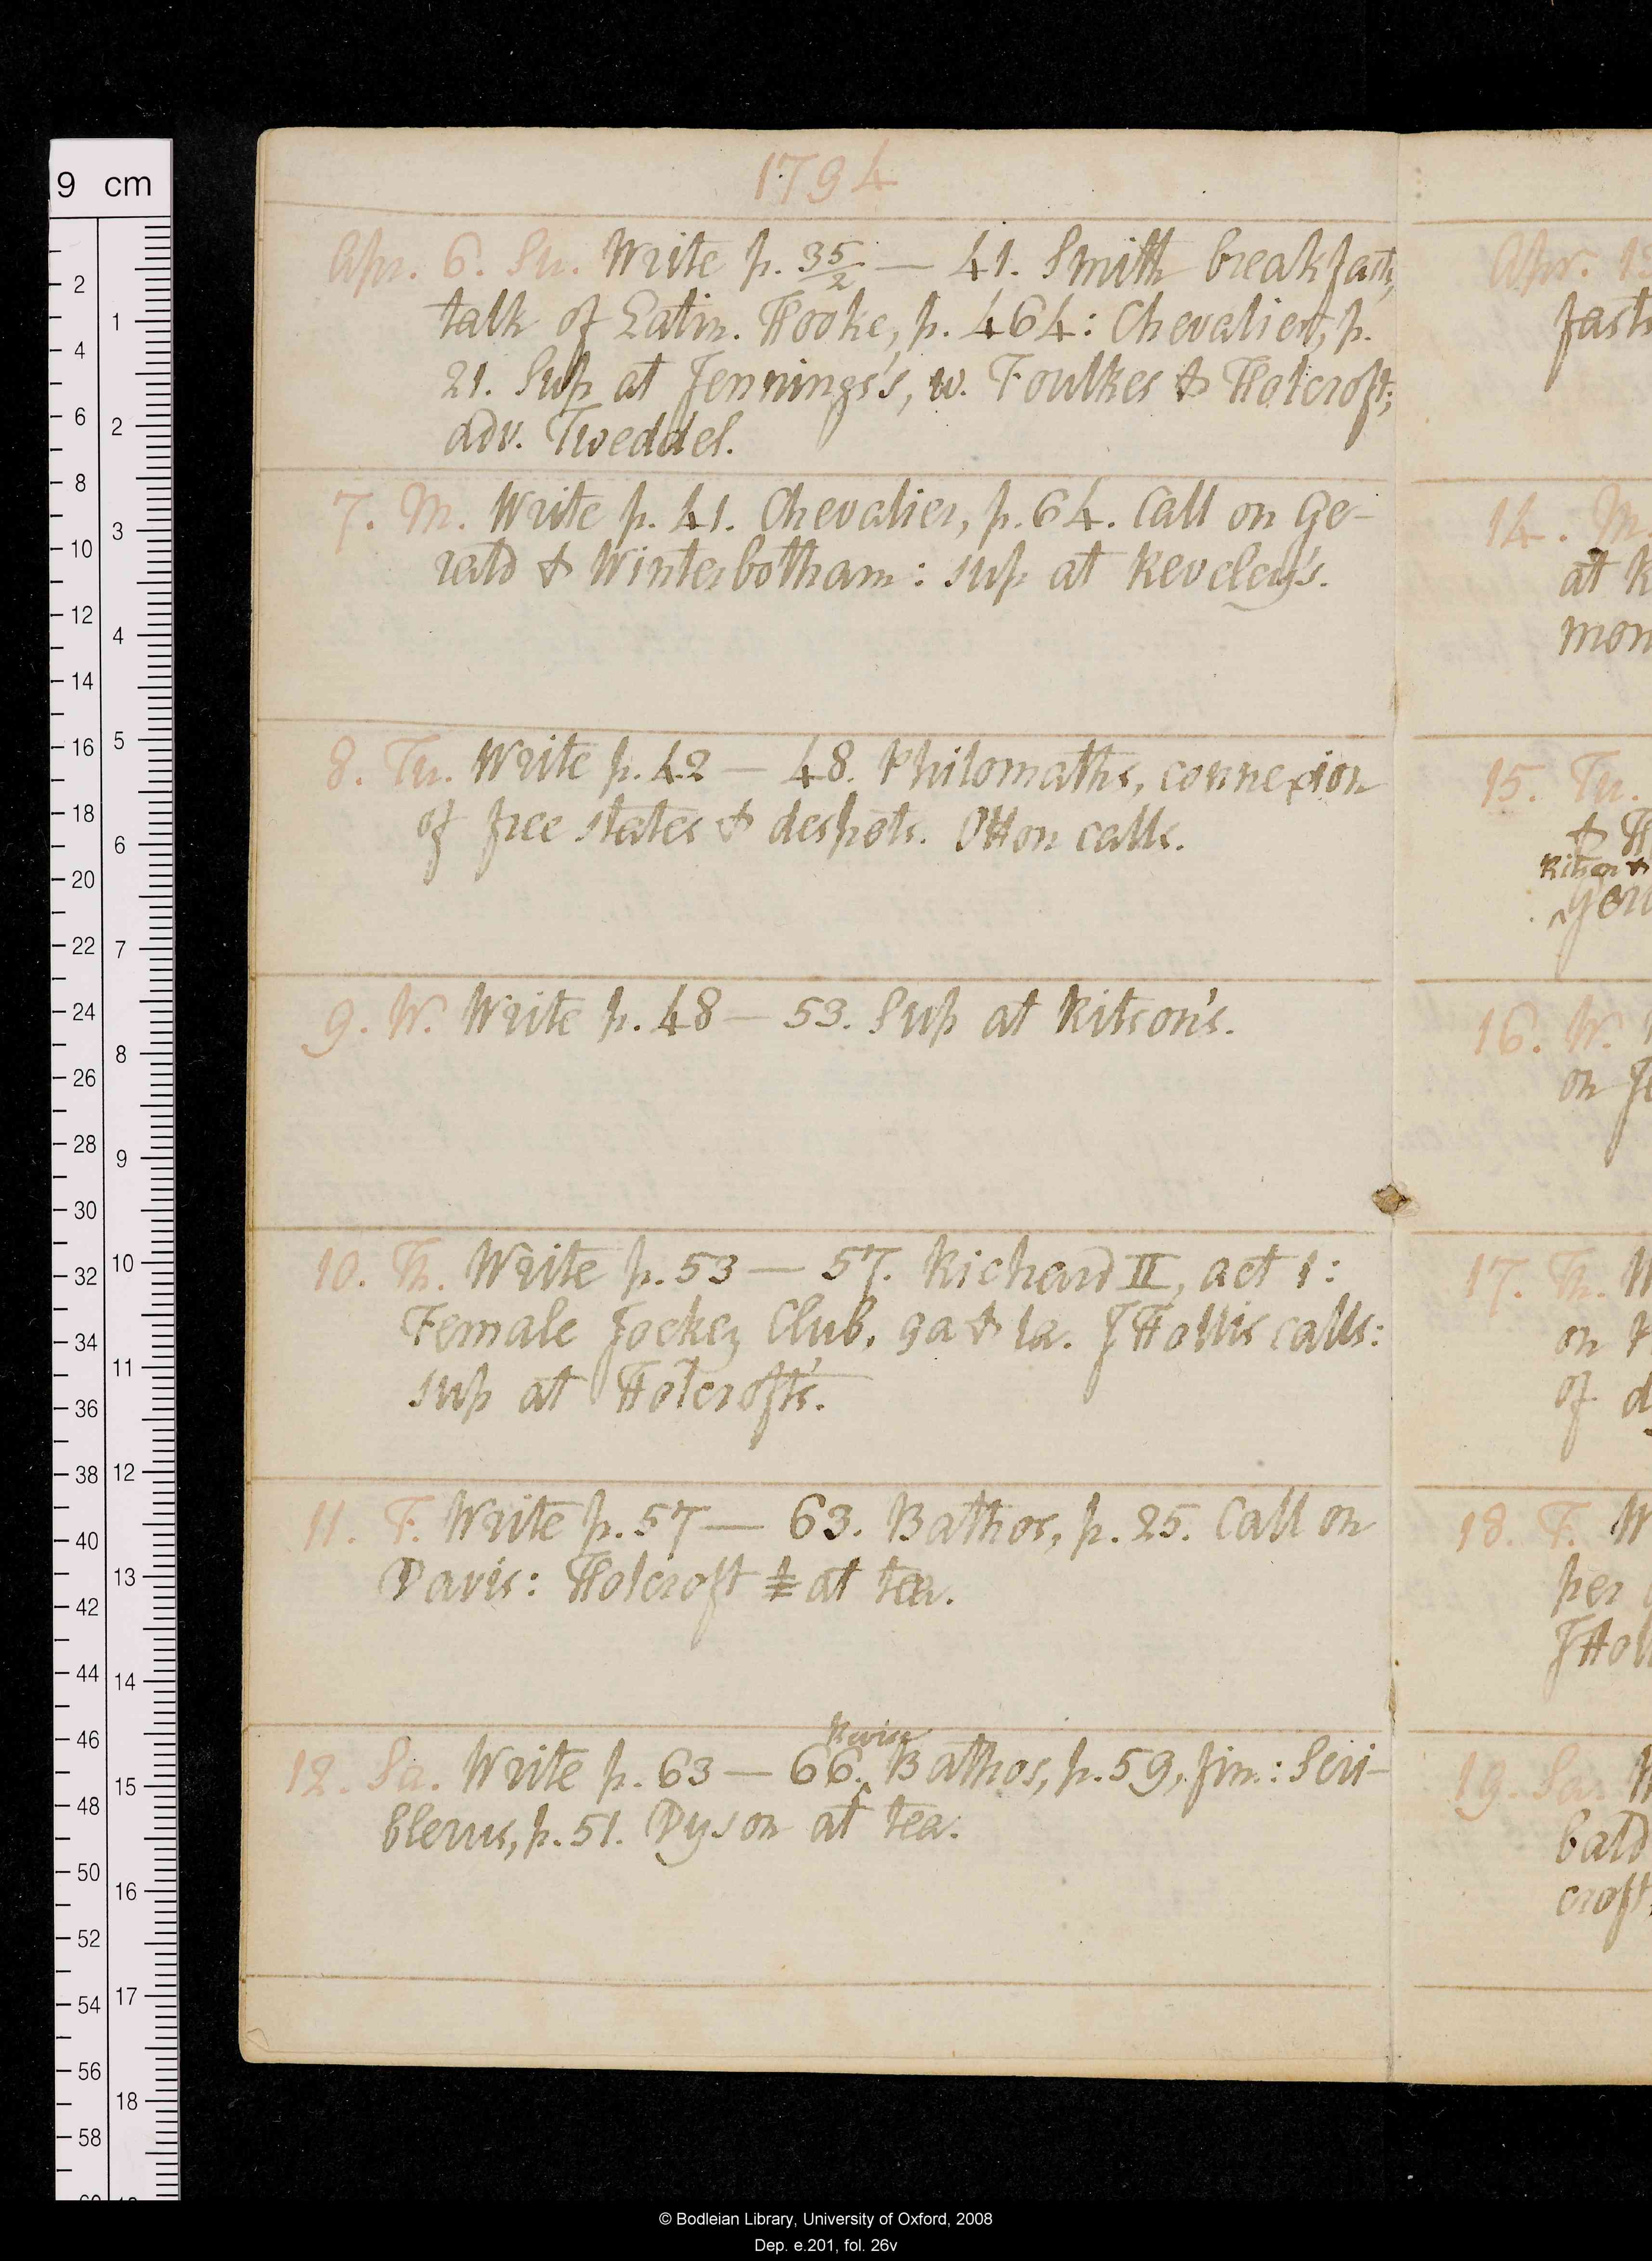 1794
Apr. 6. Su. Write p. 35/2 — 41. Smith breakfasts,
talk of Latin. Hooke, p. 464: Chevalier, p.
21. Sup at Jennings's, w. Foulkes & Holcroft;
adv. Tweddel.
7. M. Write p. 41. Chevalier, p. 64. Call on Ge-
rald & Winterbotham: sup at Reveley's.
8. Tu. Write p. 42 — 48. Philomaths, connexion
of free states & despots. Otton calls.
9. W. Write p. 48 — 53. Sup at Ritson's.
10. Th. Write p. 53 — 57. Richard II, act 1:
Female Jockey Club, ça & la. J Hollis calls:
sup at Holcroft's.
11. F. Write p. 57 — 63. Bathos, p. 25. Call on
Davis: Holcroft at tea.
Revise
12. Sa. Write p. 63 — 66. ^ Bathos, p. 59, fin.: Scri-
blerus, p. 51. Dyson at tea.
Apr. 13
fasts
14. M.
at R
mon
15. Tu.
& H
Ritson &
^ Ger
16. W.
on Je
17. Th. W
on
of d
18. F. W
per
J Holl
19. Sa. W
bald
croft
9 cm
© Bodleian Library, University of Oxford, 2008
Dep. e.201, fol. 26v